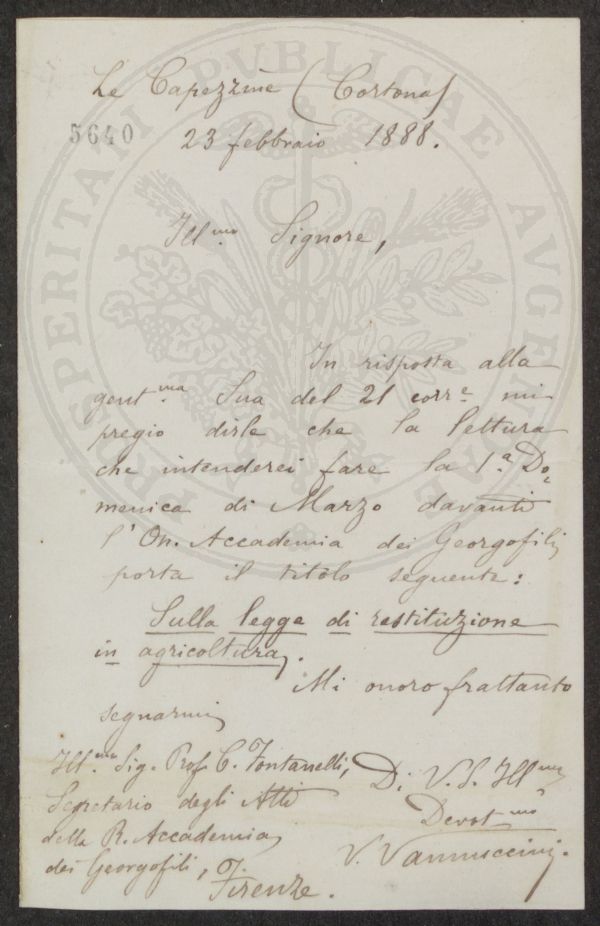 Le Capezzine (Cortona)
5640
23 febbraio 1888.
Ill.mo Signore,
In risposta alla
gent.ma Sua del 21 corr.e mi
pregio dirle che la lettura
che intenderei fare la 1.a Do=
menica di Marzo davanti
l'On. Accademia dei Georgofili
porta il titolo seguente:
Sulla legge di restituzione
in agricoltura.
Mi onoro frattanto
segnarmi
Di V. S. Ill.ma
Devot.mo
V. Vannuccini.
Ill.mo Sig. Prof. C. Fontanelli,
Segretario degli Atti
della R. Accademia
dei Georgofili,
Firenze.
PROSPERITATI PVBLICAE AVGENDAE